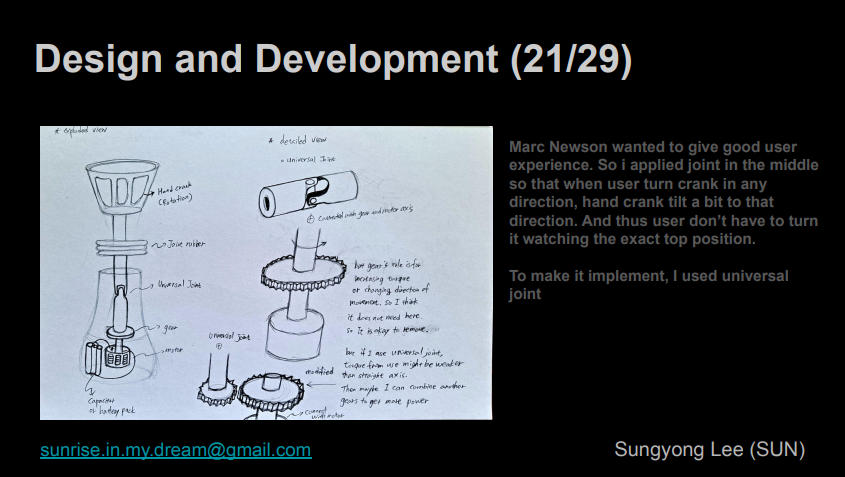 Design and Development (21/29)
* exploded view
Hand crank
(Rotation)
Joint rubber
Universal Joint
gear
motor
Capacitor
or battery pack
* detailed view
Universal Joint
connected with gear and motor axis
but gear's role is for
increasing torque
or changing direction of
movement. so I think
it does not need here.
so it is okay to remove.
universal joint
modified
but if I use universal joint,
torque from use might be weaker
than straight axis.
Then maybe I can combine another
gears to get more power
connect
with motor
Marc Newson wanted to give good user
experience. So i applied joint in the middle
so that when user turn crank in any
direction, hand crank tilt a bit to that
direction. And thus user don't have to turn
it watching the exact top position.
To make it implement, I used universal
joint
sunrise.in.my.dream@gmail.com
Sungyong Lee (SUN)